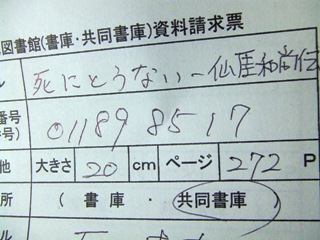 図書館(書庫・共同書庫)資料請求票
ル 死にとうない－仙厓和尚伝
番号 011898517
号)
他 大きさ 20 cm ページ 272 P
所 ( 書庫 ・ 共同書庫 )
ル